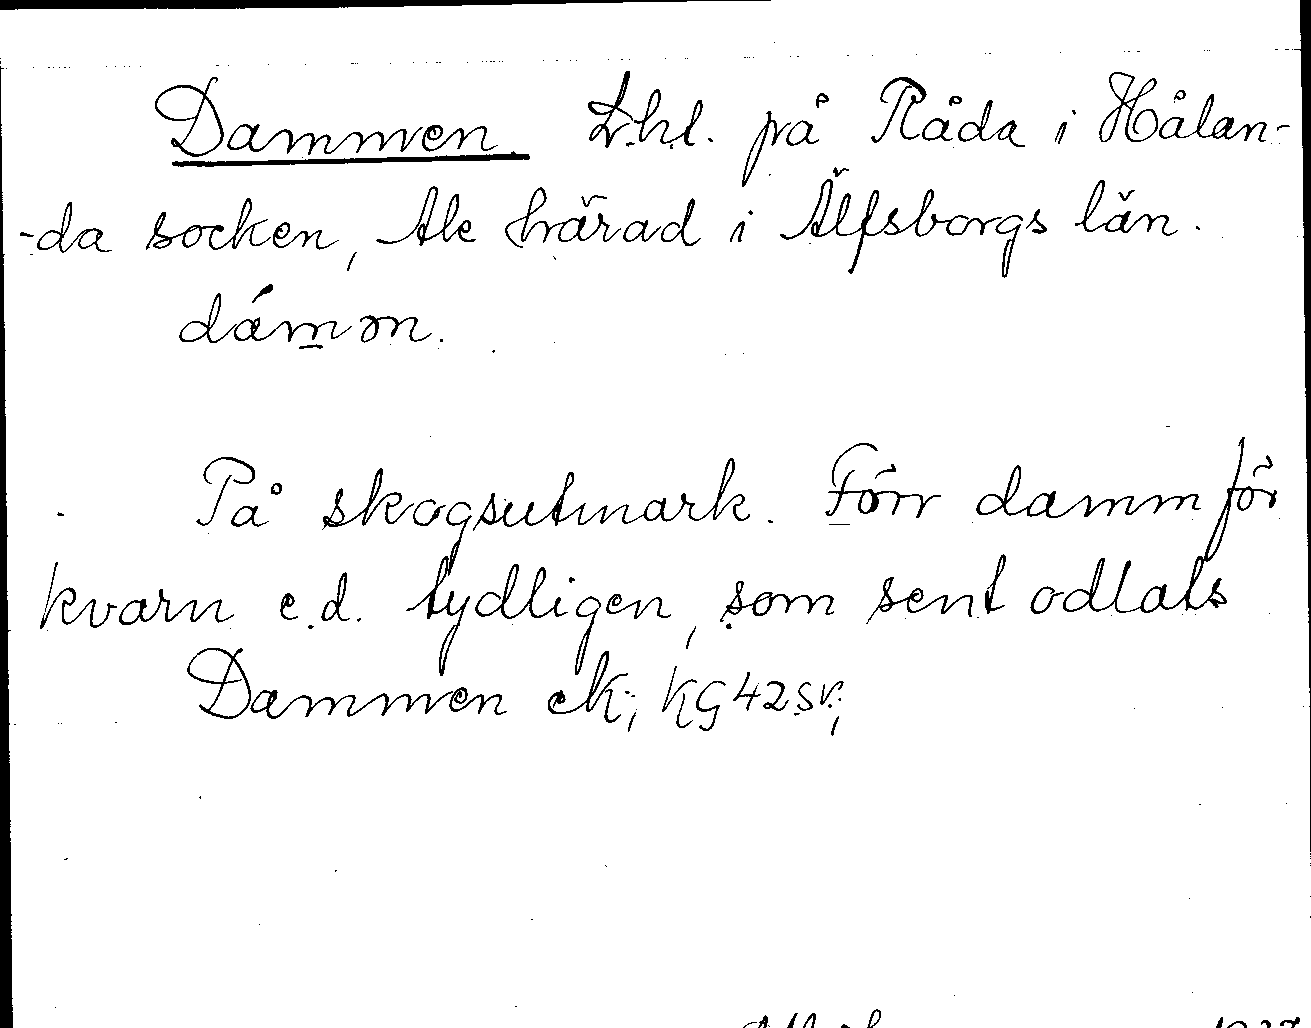 Dammen. Lht. på Råda i Hålan-
-da socken, Ale härad i Älfsborgs län.
dámən.
På skogsutmark. Förr damm för
kvarn e.d. tydligen, som sent odlats
Dammen ek; KG42SV;